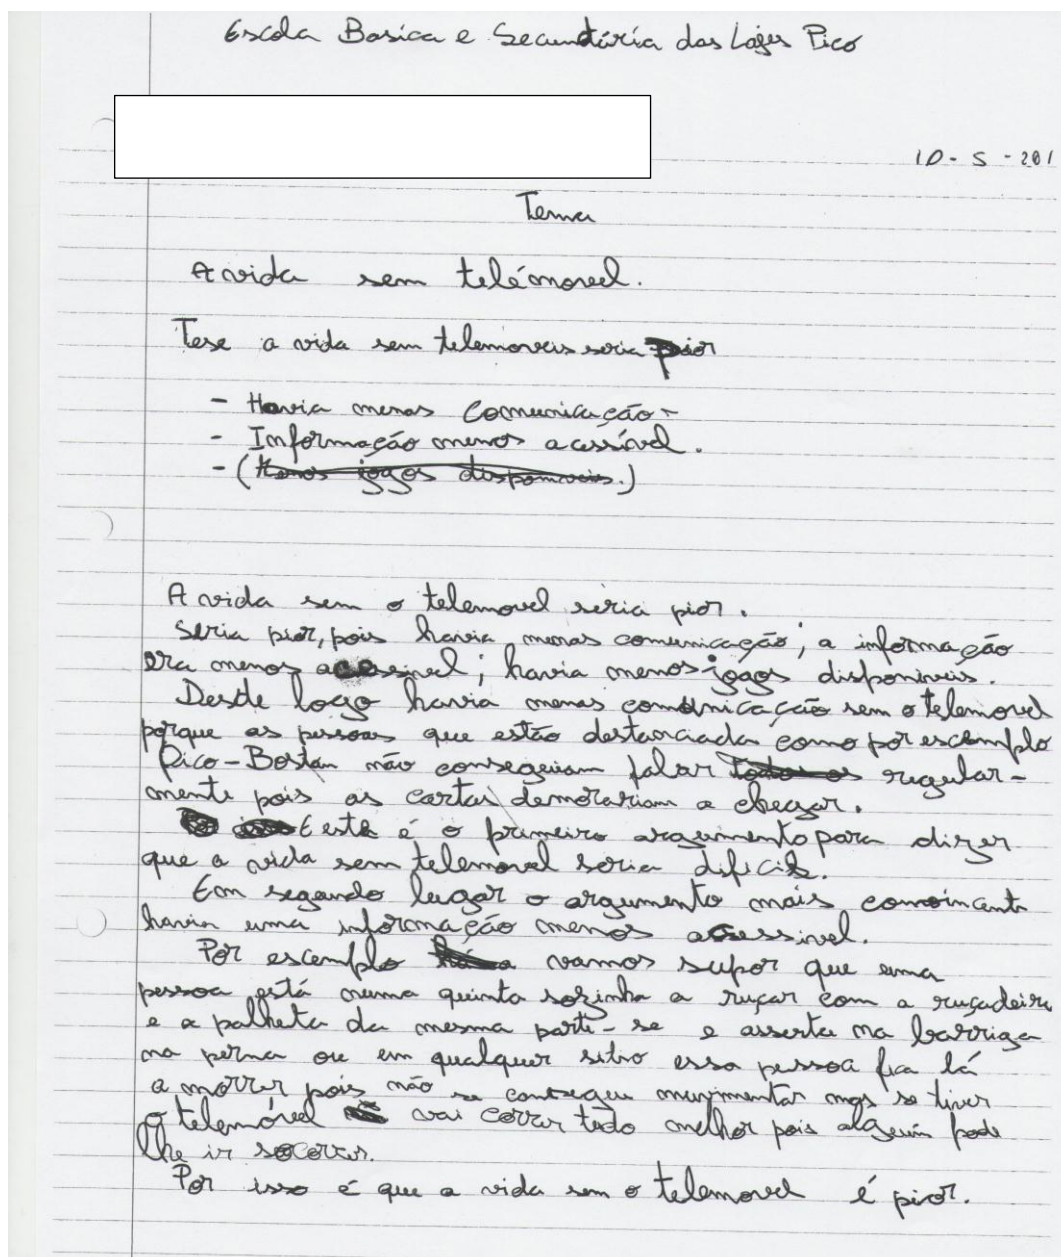 Escola Basica e Secundária das Lajes Pico
10-5-201
Tema
A vida sem telémovel.
Tese a vida sem telemoveis seria pior
- Havia menas Comunicação-
- Informação menos acessível.
- (Menos jogos disponiveis.)
A vida sem o telemovel seria pior.
Seria pior, pois havia menas comunicação; a informação
era menos acessivel; havia menos jogos disponiveis.
Desde logo havia menas comunicação sem o telemovel
porque as pessoas que estão destanciadas como por escemplo
Pico-Bostan não conseguiam falar regular-
mente pois as cartas demorariam a chegar.
E este é o primeiro argumento para dizer
que a vida sem telemovel seria dificil.
Em segundo lugar o argumento mais convincante
havia uma informação menos acessivel.
Por escemplo vamos supor que uma
pessoa está numa quinta sozinha a ruçar com a ruçadeira
e a palheta da mesma parte-se e asserta na barriga
na perna ou em qualquer sitio essa pessoa fica lá
a morrer pois não se consegue muvimentar mas se tiver
o telemóvel vai correr todo melhor pois alguém pode
lhe ir socorrer.
Por isso é que a vida sem o telemovel é pior.